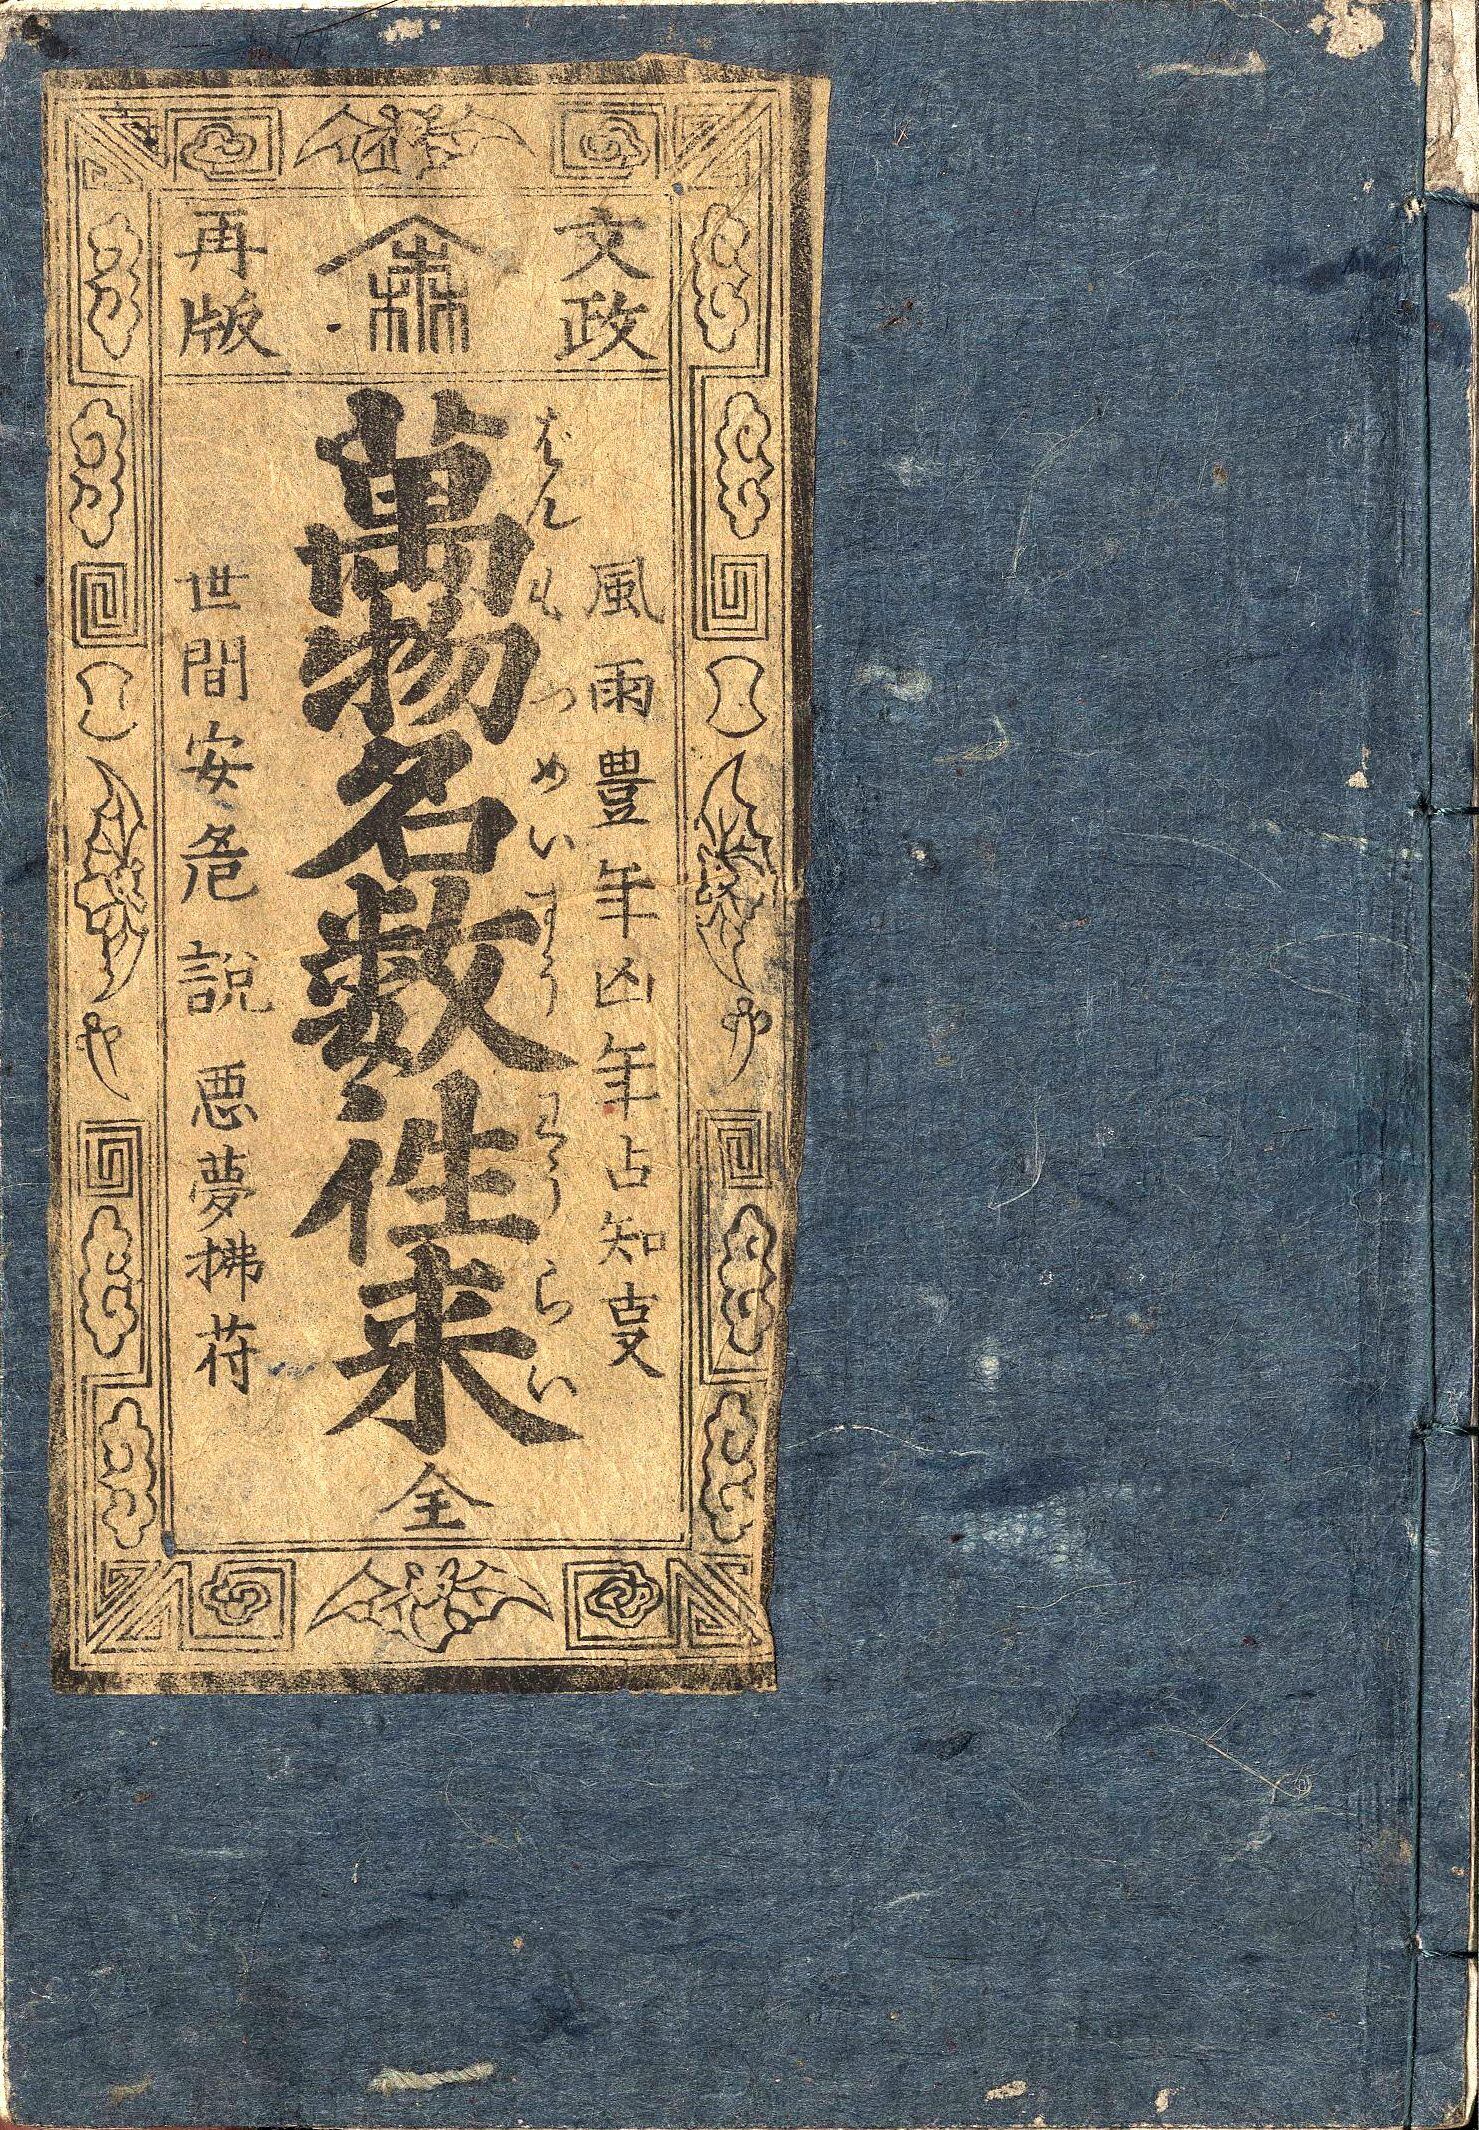 文政
再版
風雨豊年凶年占知㕝
ばんもつめいすうわうらい
萬物名数徃来
全
世間安危説
悪夢拂符